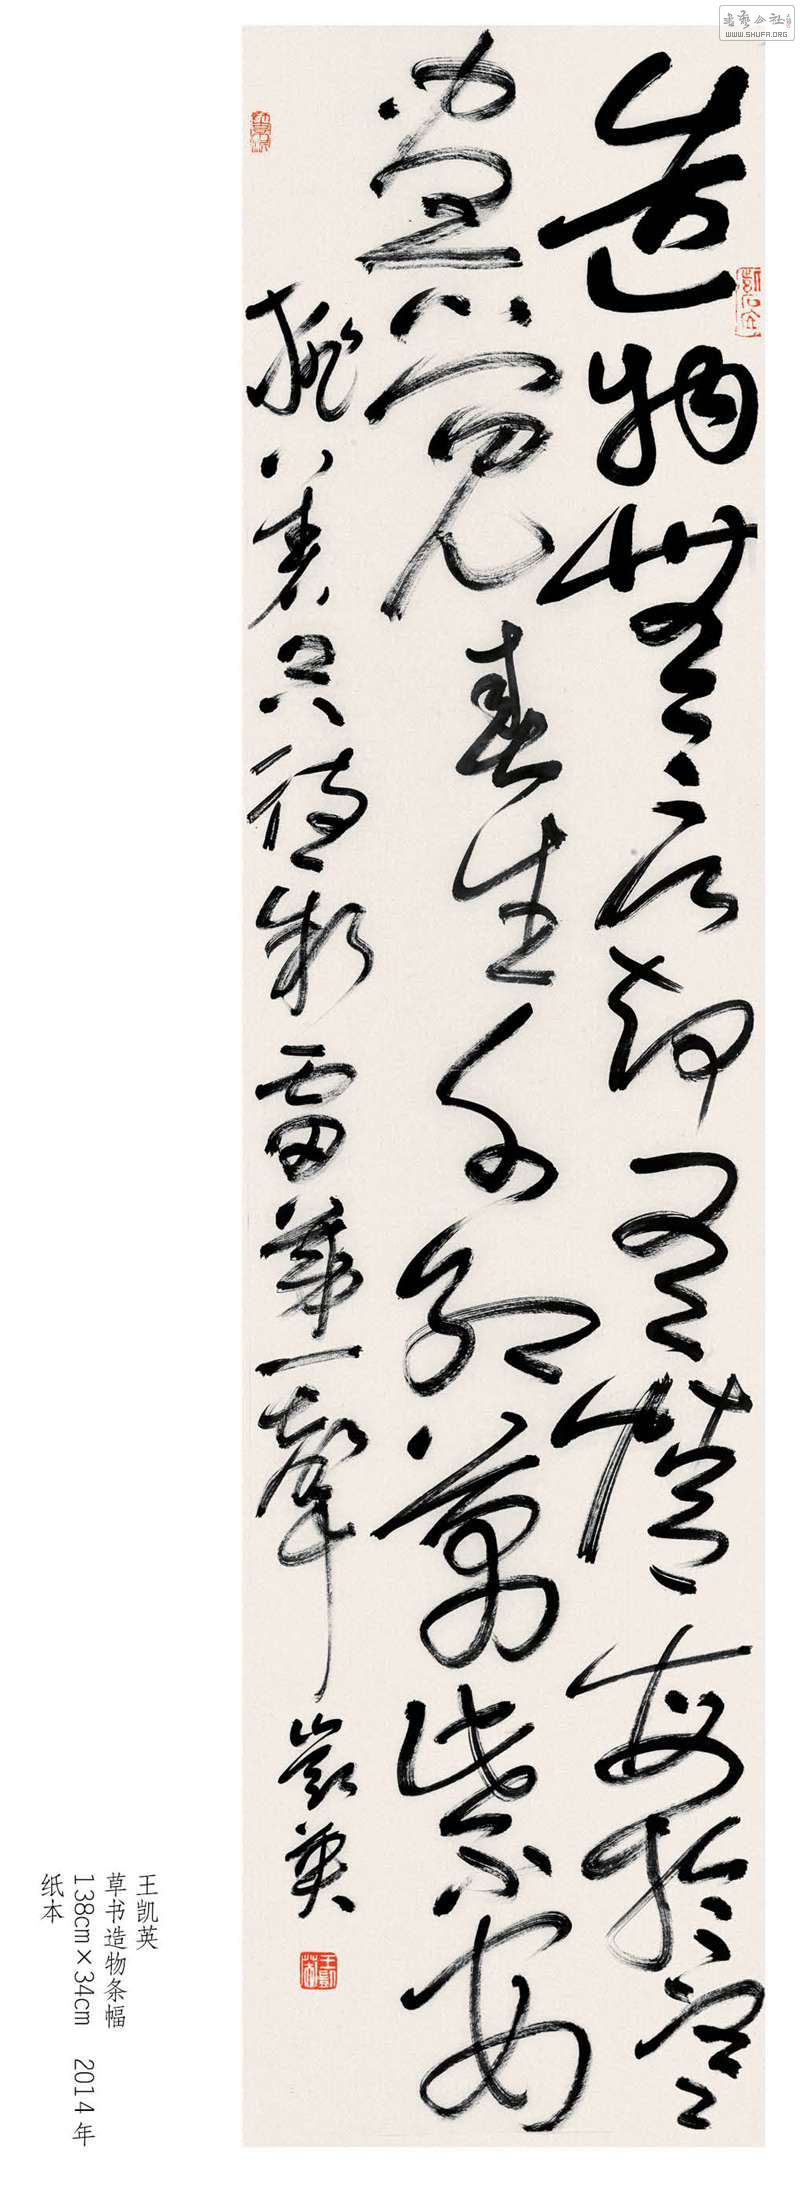 書藝公社
WWW.SHUFA.ORG
造物無言却有情每於寒
盡覺春生千紅萬紫安
排着只待新雷第一聲 凱英
王凯英
草书造物条幅
138cm×34cm 2014年
纸本